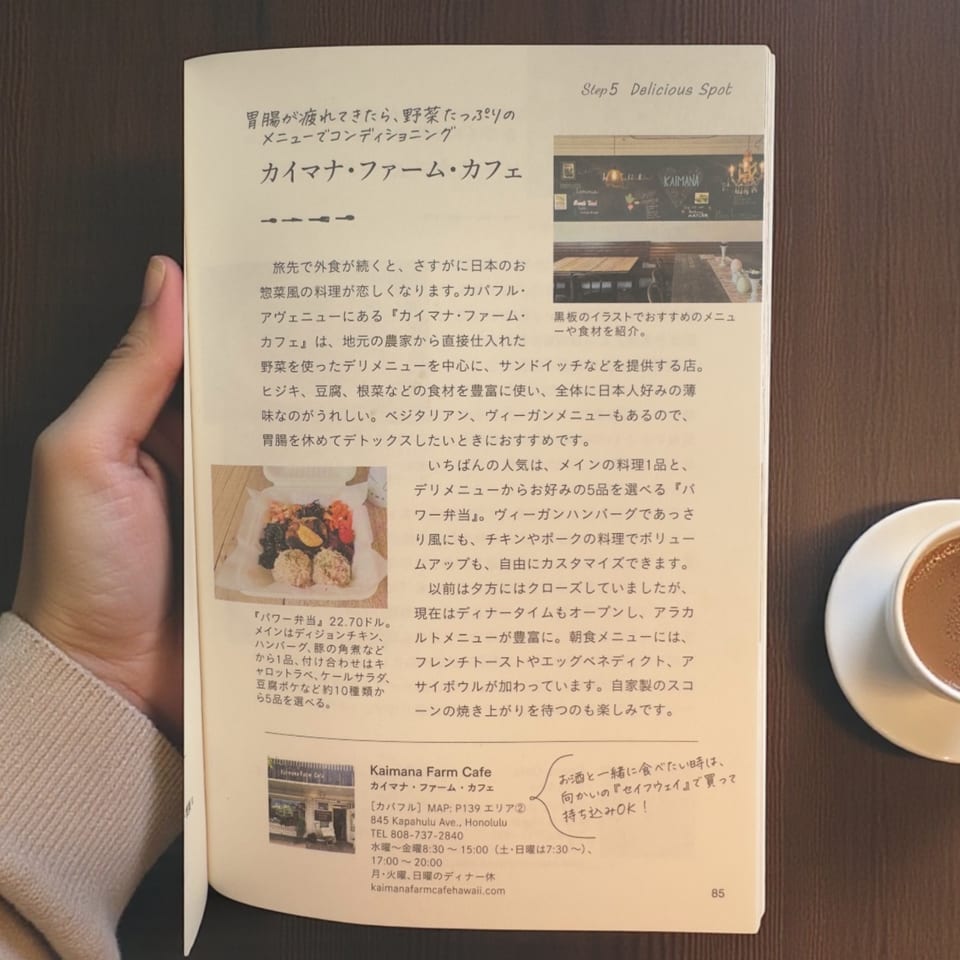 Step5 Delicious Spot
胃腸が疲れてきたら、野菜たっぷりの
メニューでコンディショニング
カイマナ・ファーム・カフェ
KAIMANA
黒板のイラストでおすすめのメニュ
ーや食材を紹介。
旅先で外食が続くと、さすがに日本のお
惣菜風の料理が恋しくなります。カパフル・
アヴェニューにある『カイマナ・ファーム・
カフェ』は、地元の農家から直接仕入れた
野菜を使ったデリメニューを中心に、サンドイッチなどを提供する店。
ヒジキ、豆腐、根菜などの食材を豊富に使い、全体に日本人好みの薄
味なのがうれしい。ベジタリアン、ヴィーガンメニューもあるので、
胃腸を休めてデトックスしたいときにおすすめです。
いちばんの人気は、メインの料理1品と、
デリメニューからお好みの5品を選べる『パ
ワー弁当』。ヴィーガンハンバーグであっさ
り風にも、チキンやポークの料理でボリュー
ムアップも、自由にカスタマイズできます。
以前は夕方にはクローズしていましたが、
現在はディナータイムもオープンし、アラカ
ルトメニューが豊富に。朝食メニューには、
フレンチトーストやエッグベネディクト、ア
サイボウルが加わっています。自家製のスコ
ーンの焼き上がりを待つのも楽しみです。
『パワー弁当』22.70ドル。
メインはディジョンチキン、
ハンバーグ、豚の角煮など
から1品、付け合わせはキ
ャロットラペ、ケールサラダ、
豆腐ポケなど約10種類か
ら5品を選べる。
Kaimana Farm Cafe
Kaimana Farm Cafe
カイマナ・ファーム・カフェ
［カパフル］MAP: P139 エリア②
845 Kapahulu Ave., Honolulu
TEL 808-737-2840
水曜～金曜8:30～15:00（土・日曜は7:30～）、
17:00～20:00
月・火曜、日曜のディナー休
kaimanafarmcafehawaii.com
お酒と一緒に食べたい時は、
向かいの『セイフウェイ』で買って
持ち込みOK！
85